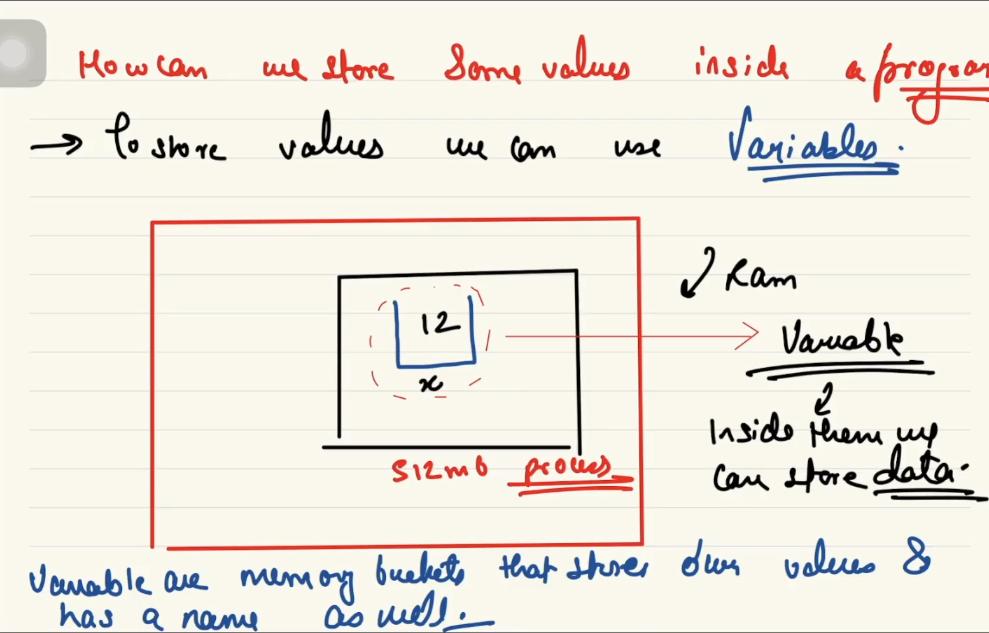 How can we store Some values inside a program
→ To store values we can use Variables.
Ram
12
Variable
x
Inside them we
can store data.
512mb process
Variable are memory buckets that stores our values &
has a name as well.